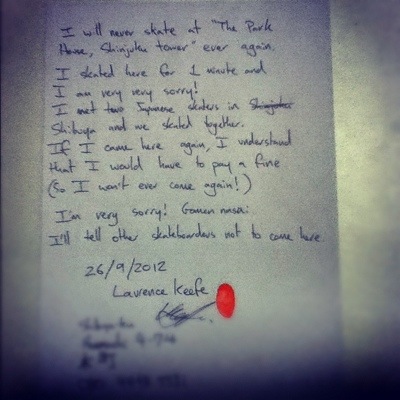 I will never skate at "The Park
House, Shinjuku tower" ever again.
I skated here for 1 minute and
I am very very sorry!
I met two Japanese skaters in Shinjuku
Shibuya and we skated together.
If I came here again, I understand
that I would have to pay a fine
(So I won't ever come again!)
I'm very sorry! Gomen nasai
I'll tell other skateboarders not to come here.
26/9/2012
Laurence Keefe